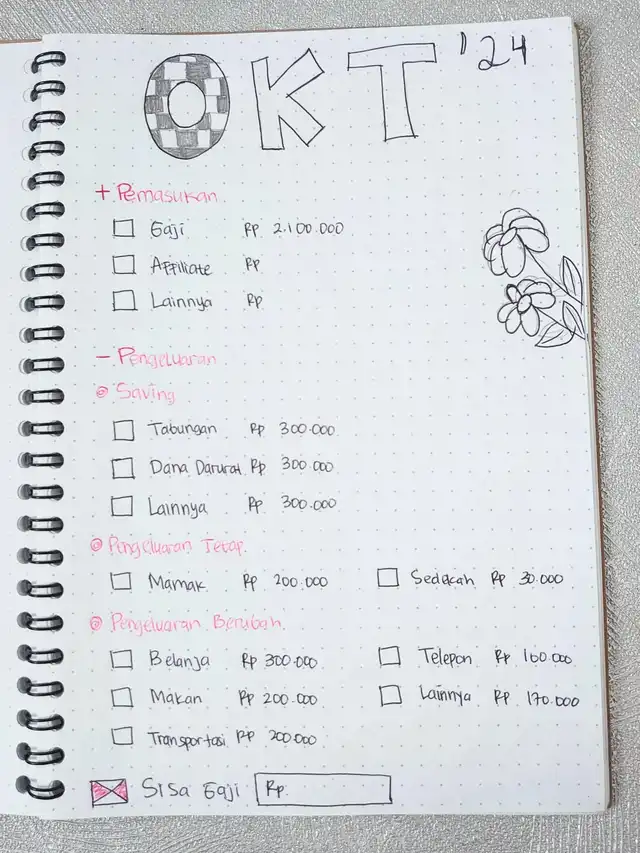 OKT '24
+ Pemasukan
Gaji Rp 2.100.000
Affiliate Rp
Lainnya Rp
- Pengeluaran
Saving
Tabungan Rp 300.000
Dana Darurat Rp 300.000
Lainnya Rp 300.000
Pengeluaran Tetap
Mamak Rp 200.000 Sedekah Rp 30.000
Pengeluaran Berubah
Belanja Rp 300.000 Telepon Rp 100.000
Makan Rp 200.000 Lainnya Rp 170.000
Transportasi Rp 200.000
Sisa Gaji Rp